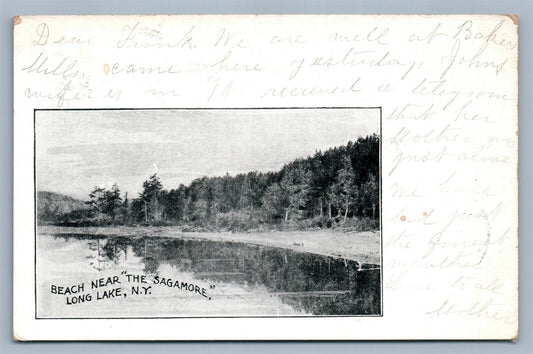 Dear Frank We are well at Baker
Mills, came here yesterday, Johns
wife is in N.Y. received a telegram
that her
Mother was
just alive
We have
had just
the finest
weather
Love to all
Mother
BEACH NEAR "THE SAGAMORE,"
LONG LAKE, N.Y.